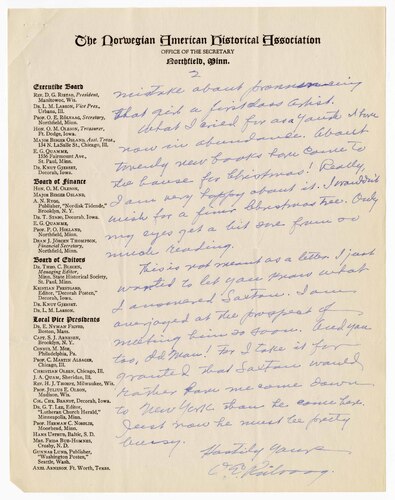 The Norwegian American Historical Association
OFFICE OF THE SECRETARY
Northfield, Minn.
2
Executive Board
REV. D. G. RISTAD, President,
Manitowoc, Wis.
DR. L. M. LARSON, Vice Pres.,
Urbana, Ill.
PROF. O. E. RÖLVAAG, Secretary,
Northfield, Minn.
HON. O. M. OLESON, Treasurer,
Ft. Dodge, Iowa.
MAJOR BIRGER OSLAND, Asst. Treas.,
134 N. LaSalle St., Chicago, Ill.
E. G. QUAMME,
Fairmount Ave.,
St. Paul, Minn.
DR. KNUT GJERSET,
Decorah, Iowa.
Board of Finance
HON. O. M. OLESON,
MAJOR BIRGER OSLAND,
A. N. RYGG,
Publisher, "Nordisk Tidende,"
Brooklyn, N. Y.
DR. T. STABO, Decorah, Iowa.
E. G. QUAMME,
PROF. P. O. HOLLAND,
Northfield, Minn.
DEAN J. JÖRGEN THOMPSON,
Financial Secretary,
Northfield, Minn.
Board of Editors
DR. THEO. C. BLEGEN,
Managing Editor,
Minn. State Historical Society,
St. Paul, Minn.
KRISTIAN PRESTGARD,
Editor, "Decorah Posten,"
Decorah, Iowa.
DR. KNUT GJERSET,
DR. L. M. LARSON.
Local Vice Presidents
DR. E. NYMAN FIGVED,
Boston, Mass.
CAPT. S. J. ARNESEN,
Brooklyn, N. Y.
CONSUL M. MOE,
Philadelphia, Pa.
PROF. C. MARTIN ALSAGER,
Chicago, Ill.
CHRISTIAN OLSEN, Chicago, Ill.
J. A. QUAM, Sheridan, Ill.
REV. H. J. THORPE, Milwaukee, Wis.
PROF. JULIUS E. OLSON,
Madison, Wis.
COL. CHR. BRANDT, Decorah, Iowa.
DR. G. T. LEE, Editor,
"Lutheran Church Herald,"
Minneapolis, Minn.
PROF. HERMAN C. NORDLIE,
Moorhead, Minn.
HANS USTRUD, Baltic, S. D.
MRS. FRIDA BUE-HOMNES,
Crosby, N. D.
GUNNAR LUND, Publisher,
"Washington Posten,"
Seattle, Wash.
AXEL ARNESON, Ft. Worth, Texas.
mistake about pronouncing
that girl a first class artist.
What I cried for as a youth I have
now in abundance. About
twenty new books have come to
the house for Christmas! Really,
I am very happy about it. I wouldn't
wish for a finer Christmas tree. Only
my eyes get a bit sore from so
much reading.
This is not meant as a letter. I just
wanted to let you know what
I answered Saxton. I am
overjoyed at the prospect of
meeting him so soon. And you
too, old Man! For I take it for
granted that Saxton would
rather have me come down
to New York than he come here.
Just now he must be pretty
bussy.
Hastily Yours
O. E. Rölvaag.